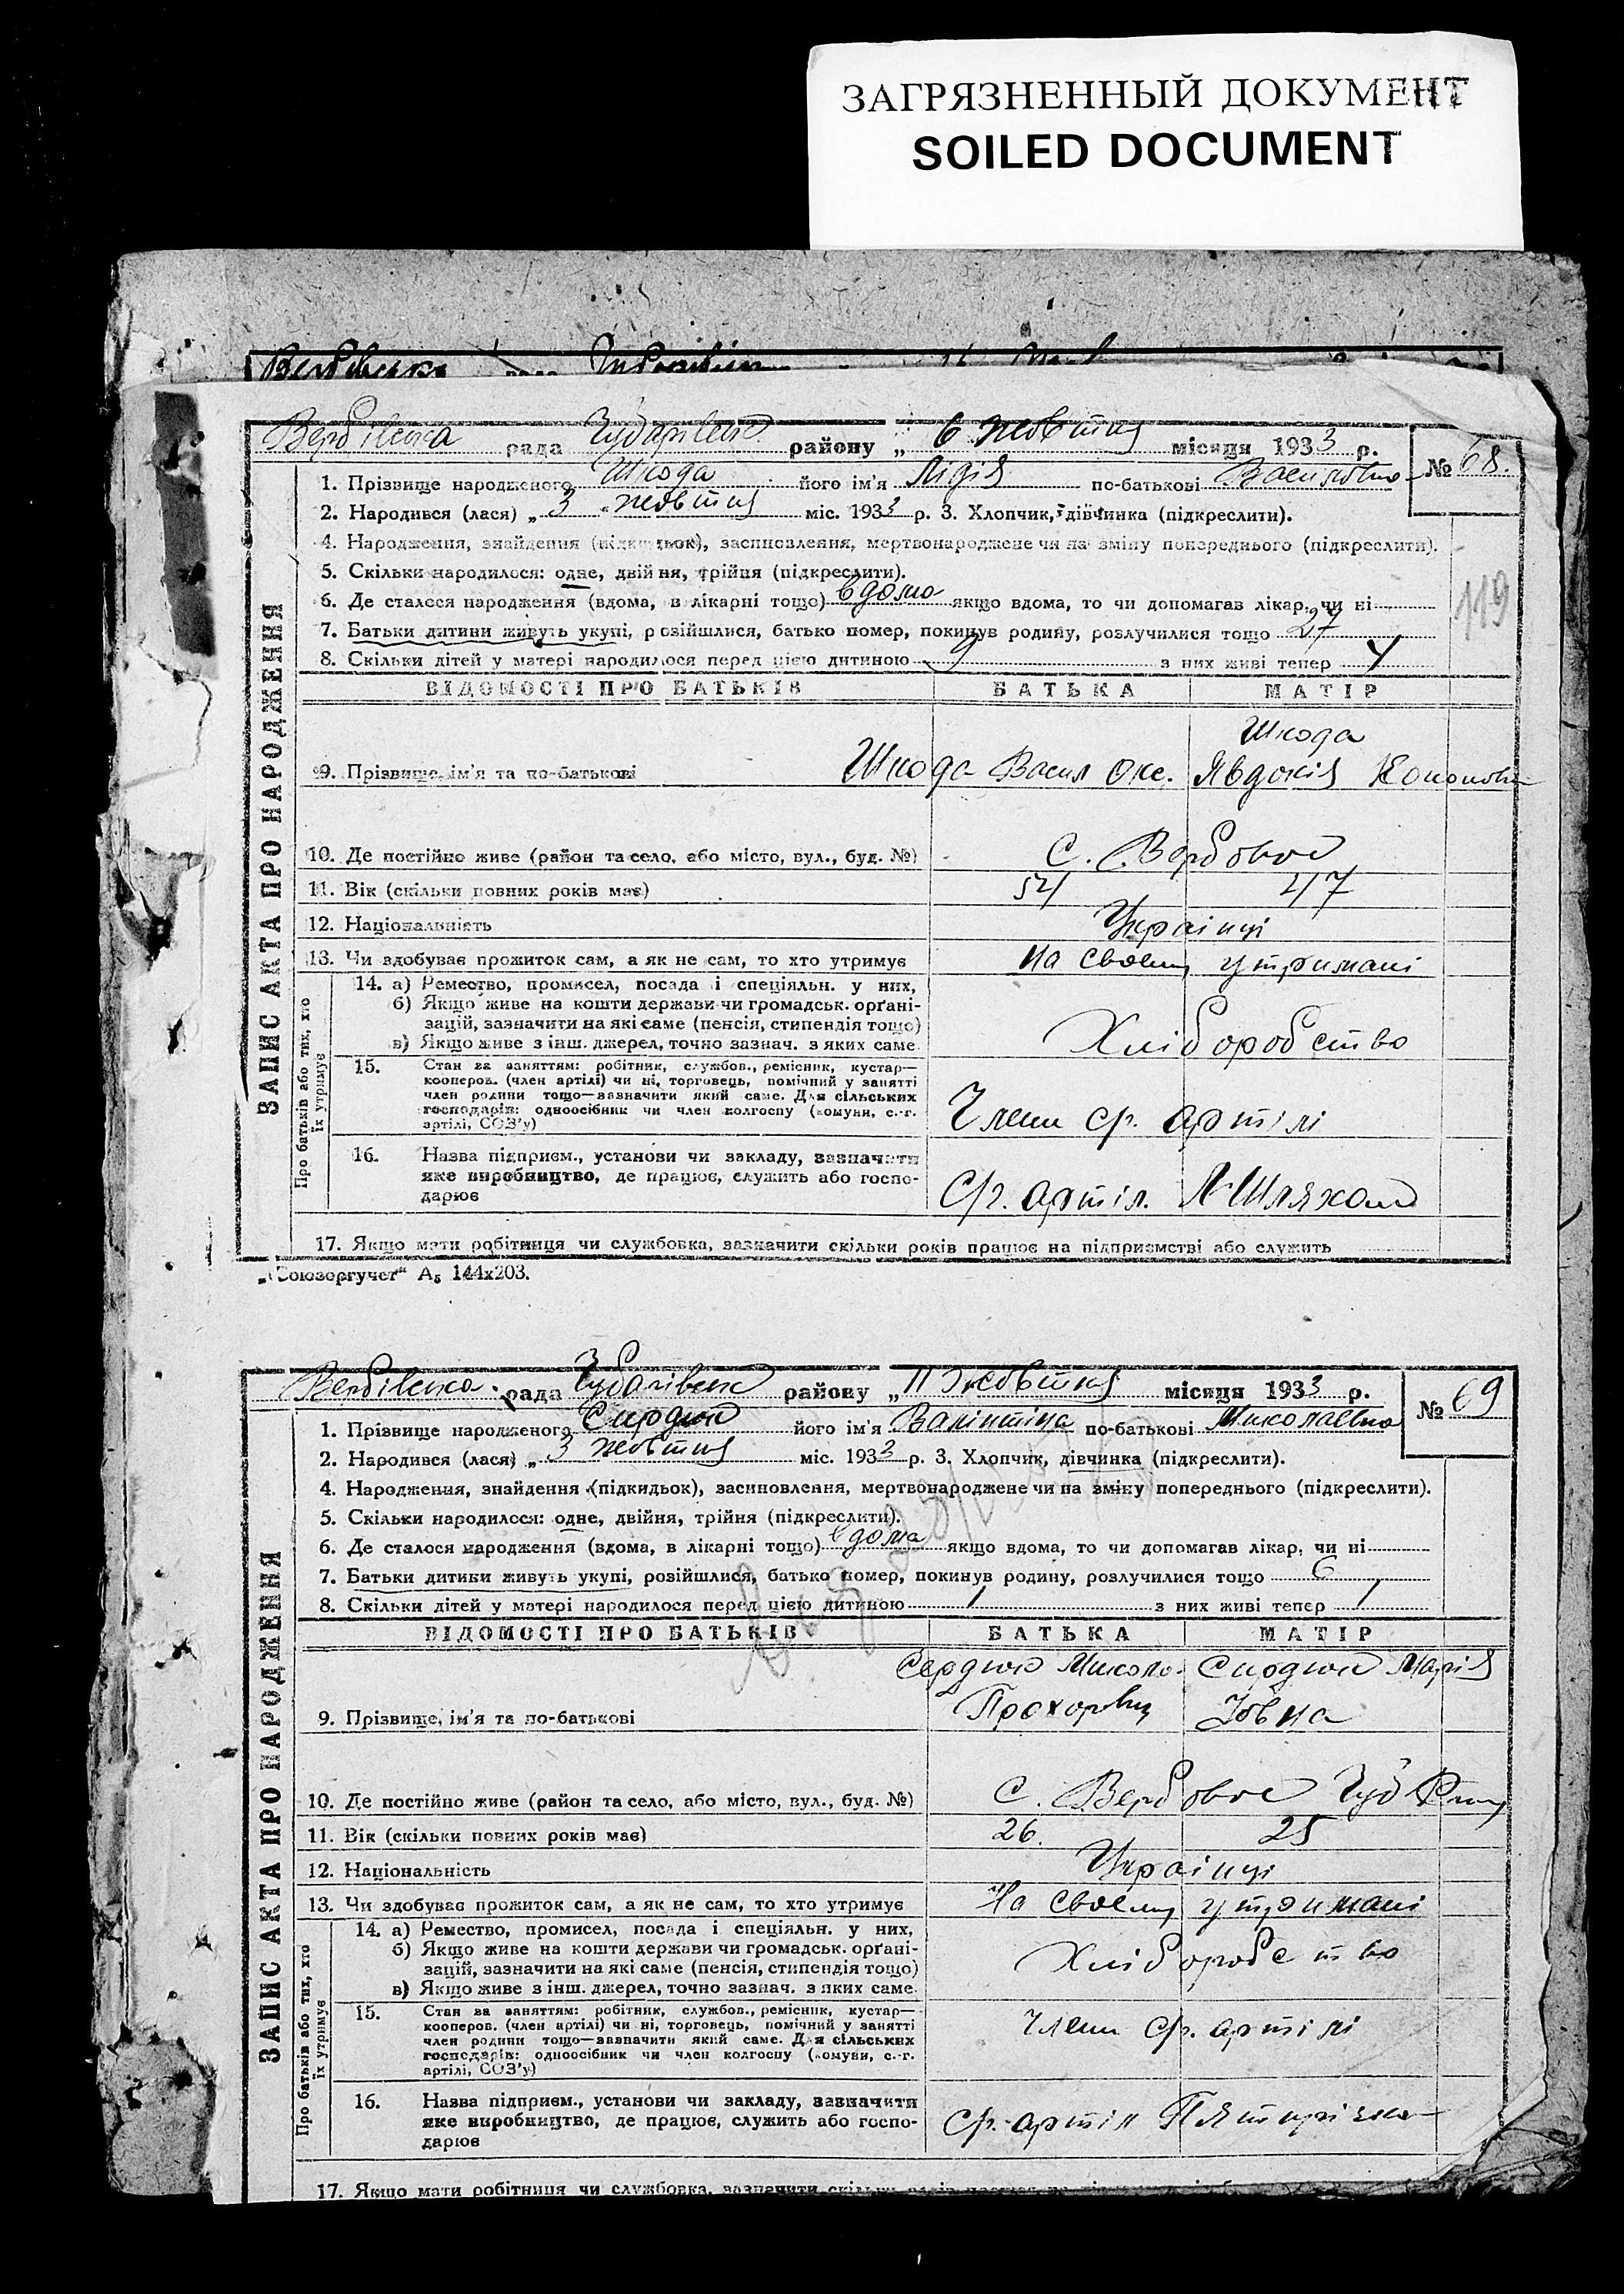 ЗАГРЯЗНЕННЫЙ ДОКУМЕНТ
SOILED DOCUMENT
Вербівська рада Чубарівськ району „ 6 жовтня місяця 1933 р. № 68.
1. Прізвище народженого Шкода його ім'я Лідія по-батькові Васильовна
2. Народився (лася) „ 3 жовтня міс. 1933 р. 3. Хлопчик, дівчинка (підкреслити).
4. Народження, знайдення (підкидьок), засиновлення, мертвонароджене чи на зміну попереднього (підкреслити).
5. Скільки народилося: одне, двійня, трійня (підкреслити).
6. Де сталося народження (вдома, в лікарні тощо) вдома якщо вдома, то чи допомагав лікар, чи ні
119
7. Батьки дитини живуть укупі, розійшлися, батько помер, покинув родину, розлучилися тощо 27
8. Скільки дітей у матері народилося перед цією дитиною 9 з них живі тепер
ВІДОМОСТІ ПРО БАТЬКІВ БАТЬКА МАТІР
Шкода
9. Прізвище, ім'я та по-батькові Шкода Васил Окс. Явдокія Кононовн
10. Де постійно живе (район та село, або місто, вул., буд. №) С. Вербовое
11. Вік (скільки повних років має) 54 47
12. Національність Українці
13. Чи здобуває прожиток сам, а як не сам, то хто утримує на своему утримані
14. а) Ремество, промисел, посада і спеціяльн. у них,
б) Якщо живе на кошти держави чи громадськ. орґані-
зацій, зазначити на які саме (пенсія, стипендія тощо)
в) Якщо живе з інш. джерел, точно зазнач. з яких саме. Хліборобство
15. Стан за заняттям: робітник, службов., ремісник, кустар—
кооперов. (член артілі) чи ні, торговець, помічний у занятті
член родини тощо—зазначити який саме. Для сільських
господарів: одноосібник чи член колгоспу (комуни, с.-г.
артілі, СОЗ'у) Члени ср. артілі
16. Назва підприєм., установи чи закладу, зазначити
яке виробництво, де працює, служить або госпо-
дарює Ср. артіл. Шляхом
17. Якщо мати робітниця чи службовка, зазначити скільки років працює на підприємстві або служить
ЗАПИС АКТА ПРО НАРОДЖЕННЯ
Про батьків або тих, хто
їх утримує
„Союзоргучет“ А₅ 144х203.
Вербівська рада Чубарівськ району „ 11 жовтня місяця 1933 р. № 69
1. Прізвище народженого Сирдюк його ім'я Валінтіна по-батькові Миколаевна
2. Народився (лася) „ 3 жовтня міс. 1933 р. 3. Хлопчик, дівчинка (підкреслити).
4. Народження, знайдення (підкидьок), засиновлення, мертвонароджене чи на зміну попереднього (підкреслити).
5. Скільки народилося: одне, двійня, трійня (підкреслити).
6. Де сталося народження (вдома, в лікарні тощо) вдома якщо вдома, то чи допомагав лікар, чи ні
7. Батьки дитини живуть укупі, розійшлися, батько помер, покинув родину, розлучилися тощо 6
8. Скільки дітей у матері народилося перед цією дитиною 1 з них живі тепер 1
ВІДОМОСТІ ПРО БАТЬКІВ БАТЬКА МАТІР
Сердюк Микола Сирдюк Марія
9. Прізвище, ім'я та по-батькові Прохорович Йовна
10. Де постійно живе (район та село, або місто, вул., буд. №) С. Вербовое Чуб
11. Вік (скільки повних років має) 26. 25
12. Національність Українці
13. Чи здобуває прожиток сам, а як не сам, то хто утримує На своему утримані
14. а) Ремество, промисел, посада і спеціяльн. у них,
б) Якщо живе на кошти держави чи громадськ. орґані-
зацій, зазначити на які саме (пенсія, стипендія тощо)
в) Якщо живе з інш. джерел, точно зазнач. з яких саме. Хліборобство
15. Стан за заняттям: робітник, службов., ремісник, кустар—
кооперов. (член артілі) чи ні, торговець, помічний у занятті
член родини тощо—зазначити який саме. Для сільських
господарів: одноосібник чи член колгоспу (комуни, с.-г.
артілі, СОЗ'у) члени ср. артілі
16. Назва підприєм., установи чи закладу, зазначити
яке виробництво, де працює, служить або госпо-
дарює ср. артіл Пятирічка
17. Якщо мати робітниця чи службовка, зазначити
ЗАПИС АКТА ПРО НАРОДЖЕННЯ
Про батьків або тих, хто
їх утримує